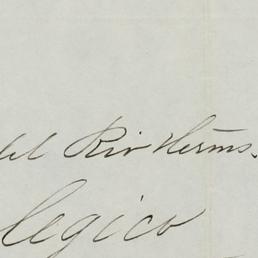 del Rio Herms.
legico